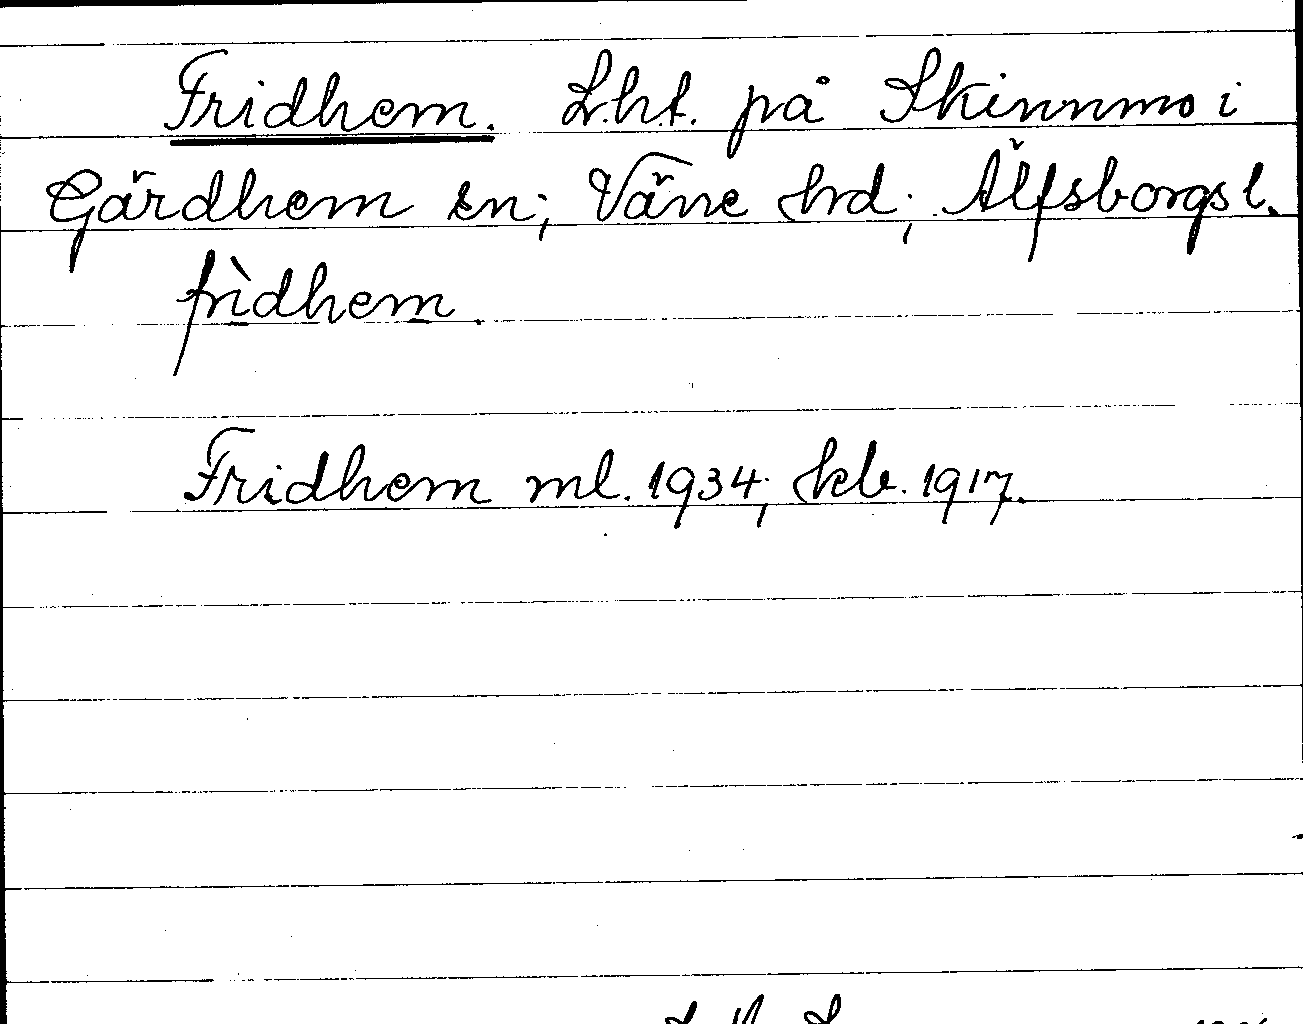 Fridhem. Lht. på Skinnmo i
Gärdhem sn; Väne hd; Älfsborgs l.
frìdhem.
Fridhem ml. 1934; kb. 1917.